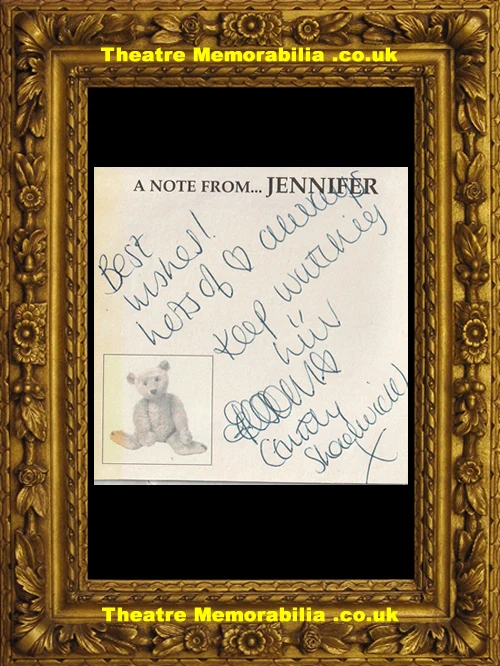 Theatre Memorabilia .co.uk
A NOTE FROM... JENNIFER
Best
wishes!
Lots of ♡ always
Keep watching
luv
Shadwick
X
Theatre Memorabilia .co.uk